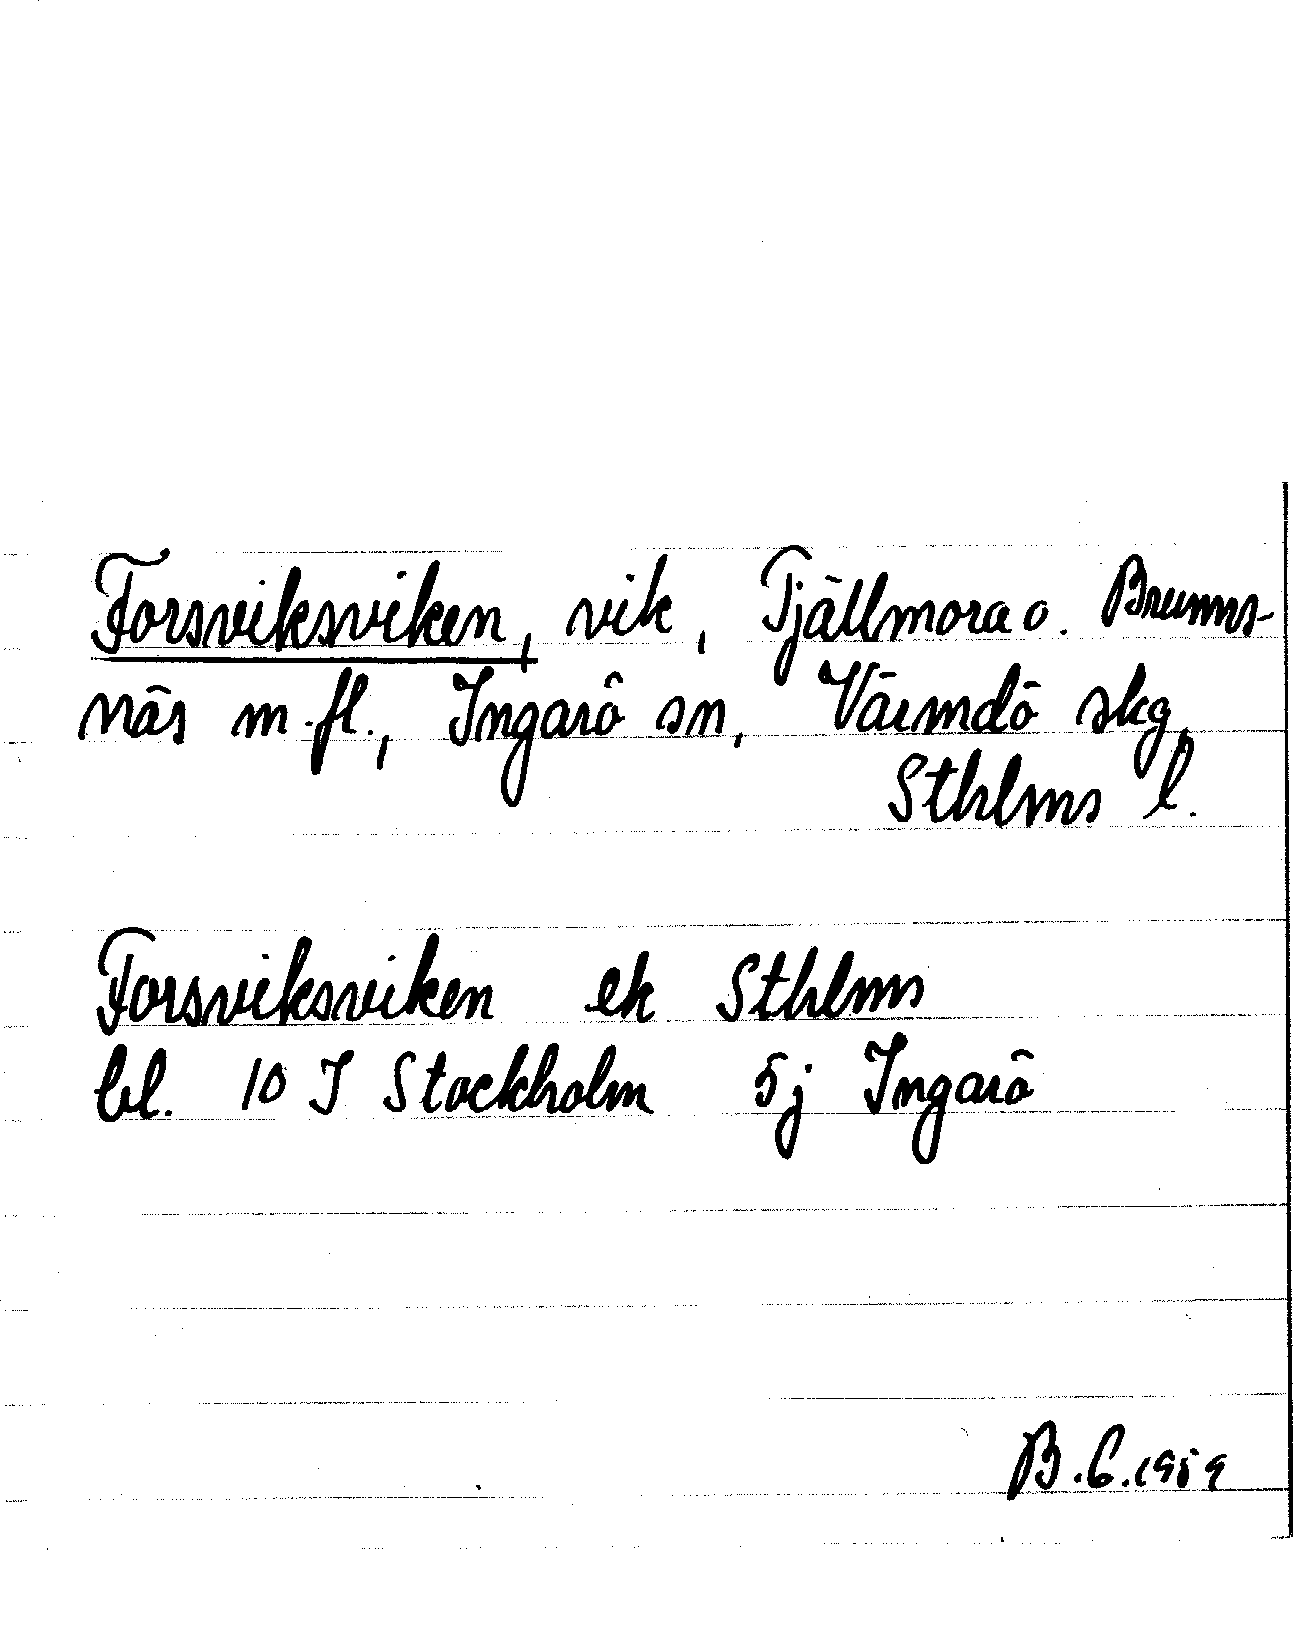 Forsviksviken, vik, Tjällmora o. Brunns-
näs m.fl., Ingarö sn, Värmdö skg,
Sthlms l.
Forsviksviken ek Sthlms
bl. 10 I Stockholm 5j Ingarö
B.C. 1959